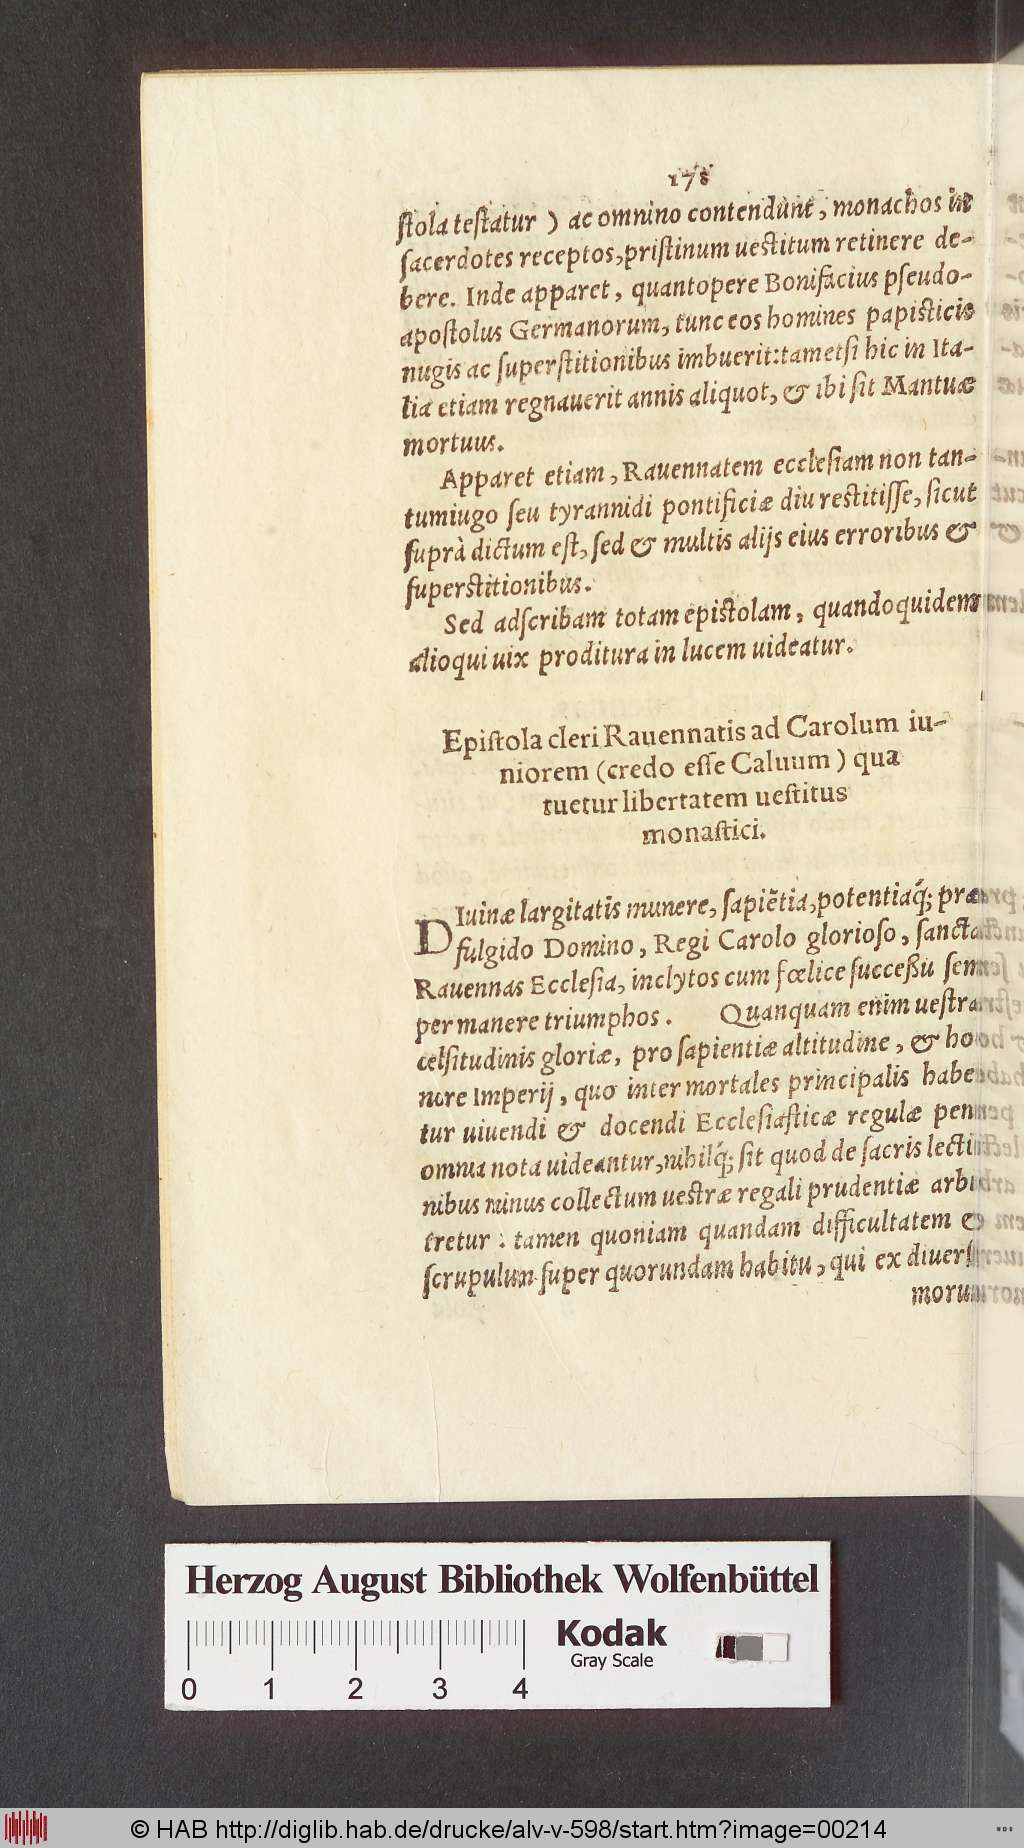 178
stola testatur ) ac omnino contendunt, monachos in
sacerdotes receptos, pristinum uestitum retinere de-
bere. Inde apparet, quantopere Bonifacius pseudo-
apostolus Germanorum, tunc eos homines papisticis
nugis ac superstitionibus imbuerit: tametsi hic in Ita-
lia etiam regnauerit annis aliquot, & ibi sit Mantuæ
mortuus.
Apparet etiam, Rauennatem ecclesiam non tan-
tum iugo seu tyrannidi pontificiæ diu restitisse, sicut
suprà dictum est, sed & multis alijs eius erroribus &
superstitionibus.
Sed adscribam totam epistolam, quandoquidem
alioqui uix proditura in lucem uideatur.
Epistola cleri Rauennatis ad Carolum iu-
niorem (credo esse Caluum ) qua
tuetur libertatem uestitus
monastici.
DIuinæ largitatis munere, sapiẽtia, potentiaq́; præ
fulgido Domino, Regi Carolo glorioso, sancta
Rauennas Ecclesia, inclytos cum fœlice successu sem
per manere triumphos. Quanquam enim uestra
celsitudinis gloriæ, pro sapientiæ altitudine, & ho
nore Imperij, quo inter mortales principalis habe
tur uiuendi & docendi Ecclesiasticæ regulæ pen
omnia nota uideantur, nihilq́; sit quod de sacris lecti
nibus minus collectum uestræ regali prudentiæ arbi
tretur : tamen quoniam quandam difficultatem &
scrupulum super quorundam habitu, qui ex diuers
morum
Herzog August Bibliothek Wolfenbüttel
Kodak
Gray Scale
0 1 2 3 4
© HAB http://diglib.hab.de/drucke/alv-v-598/start.htm?image=00214